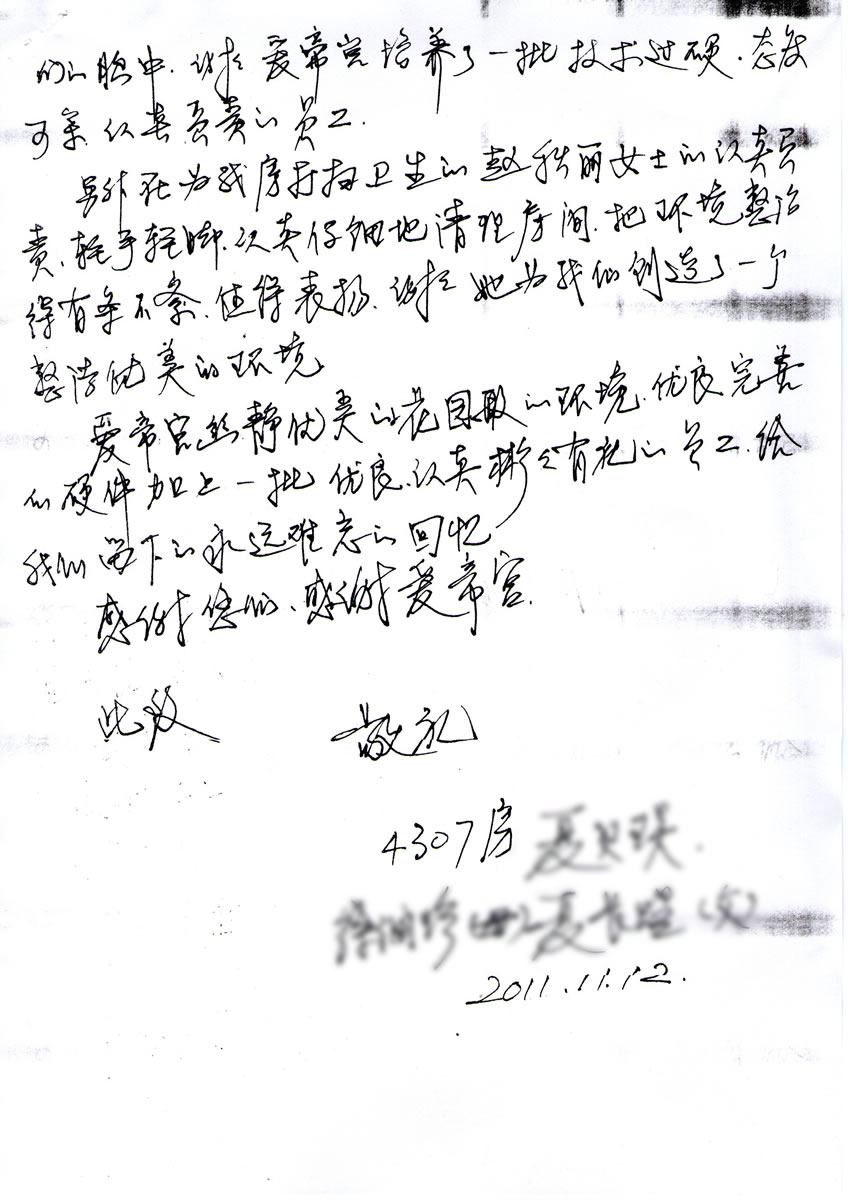 们的脑中.谢谢爱帝宫培养了一批技术过硬.态度
可亲.认真负责的员工.
另外死为我房打扫卫生的赵秩丽女士的认真负
责、轻手轻脚.认真仔细地清理房间.把环境整治
得有条不紊.值得表扬.谢谢她为我们创造了一个
整洁优美的环境
爱帝宫幽静优美的花园般的环境.优良完善
的硬件加上一批优良.认真彬彬有礼的员工.给
我们留下的永远难忘的回忆
感谢您们、感谢爱帝宫.
此致 敬礼
4307房
2011.11.12.